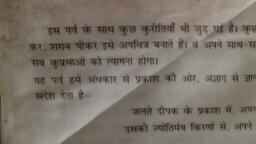 इस पर्व के साथ कुछ कुरीतियाँ भी जुड़ गई हैं। कुछ
कर, शराब पीकर इसे अपवित्र बनाते हैं। वे अपने साथ-स
सब कुप्रथाओं को त्यागना होगा।
यह पर्व हमें अंधकार से प्रकाश की ओर, अज्ञान से ज्ञान
संदेश देता है–
जलते दीपक के प्रकाश में, अपन
उसकी ज्योतिर्मय किरणों से, अपने